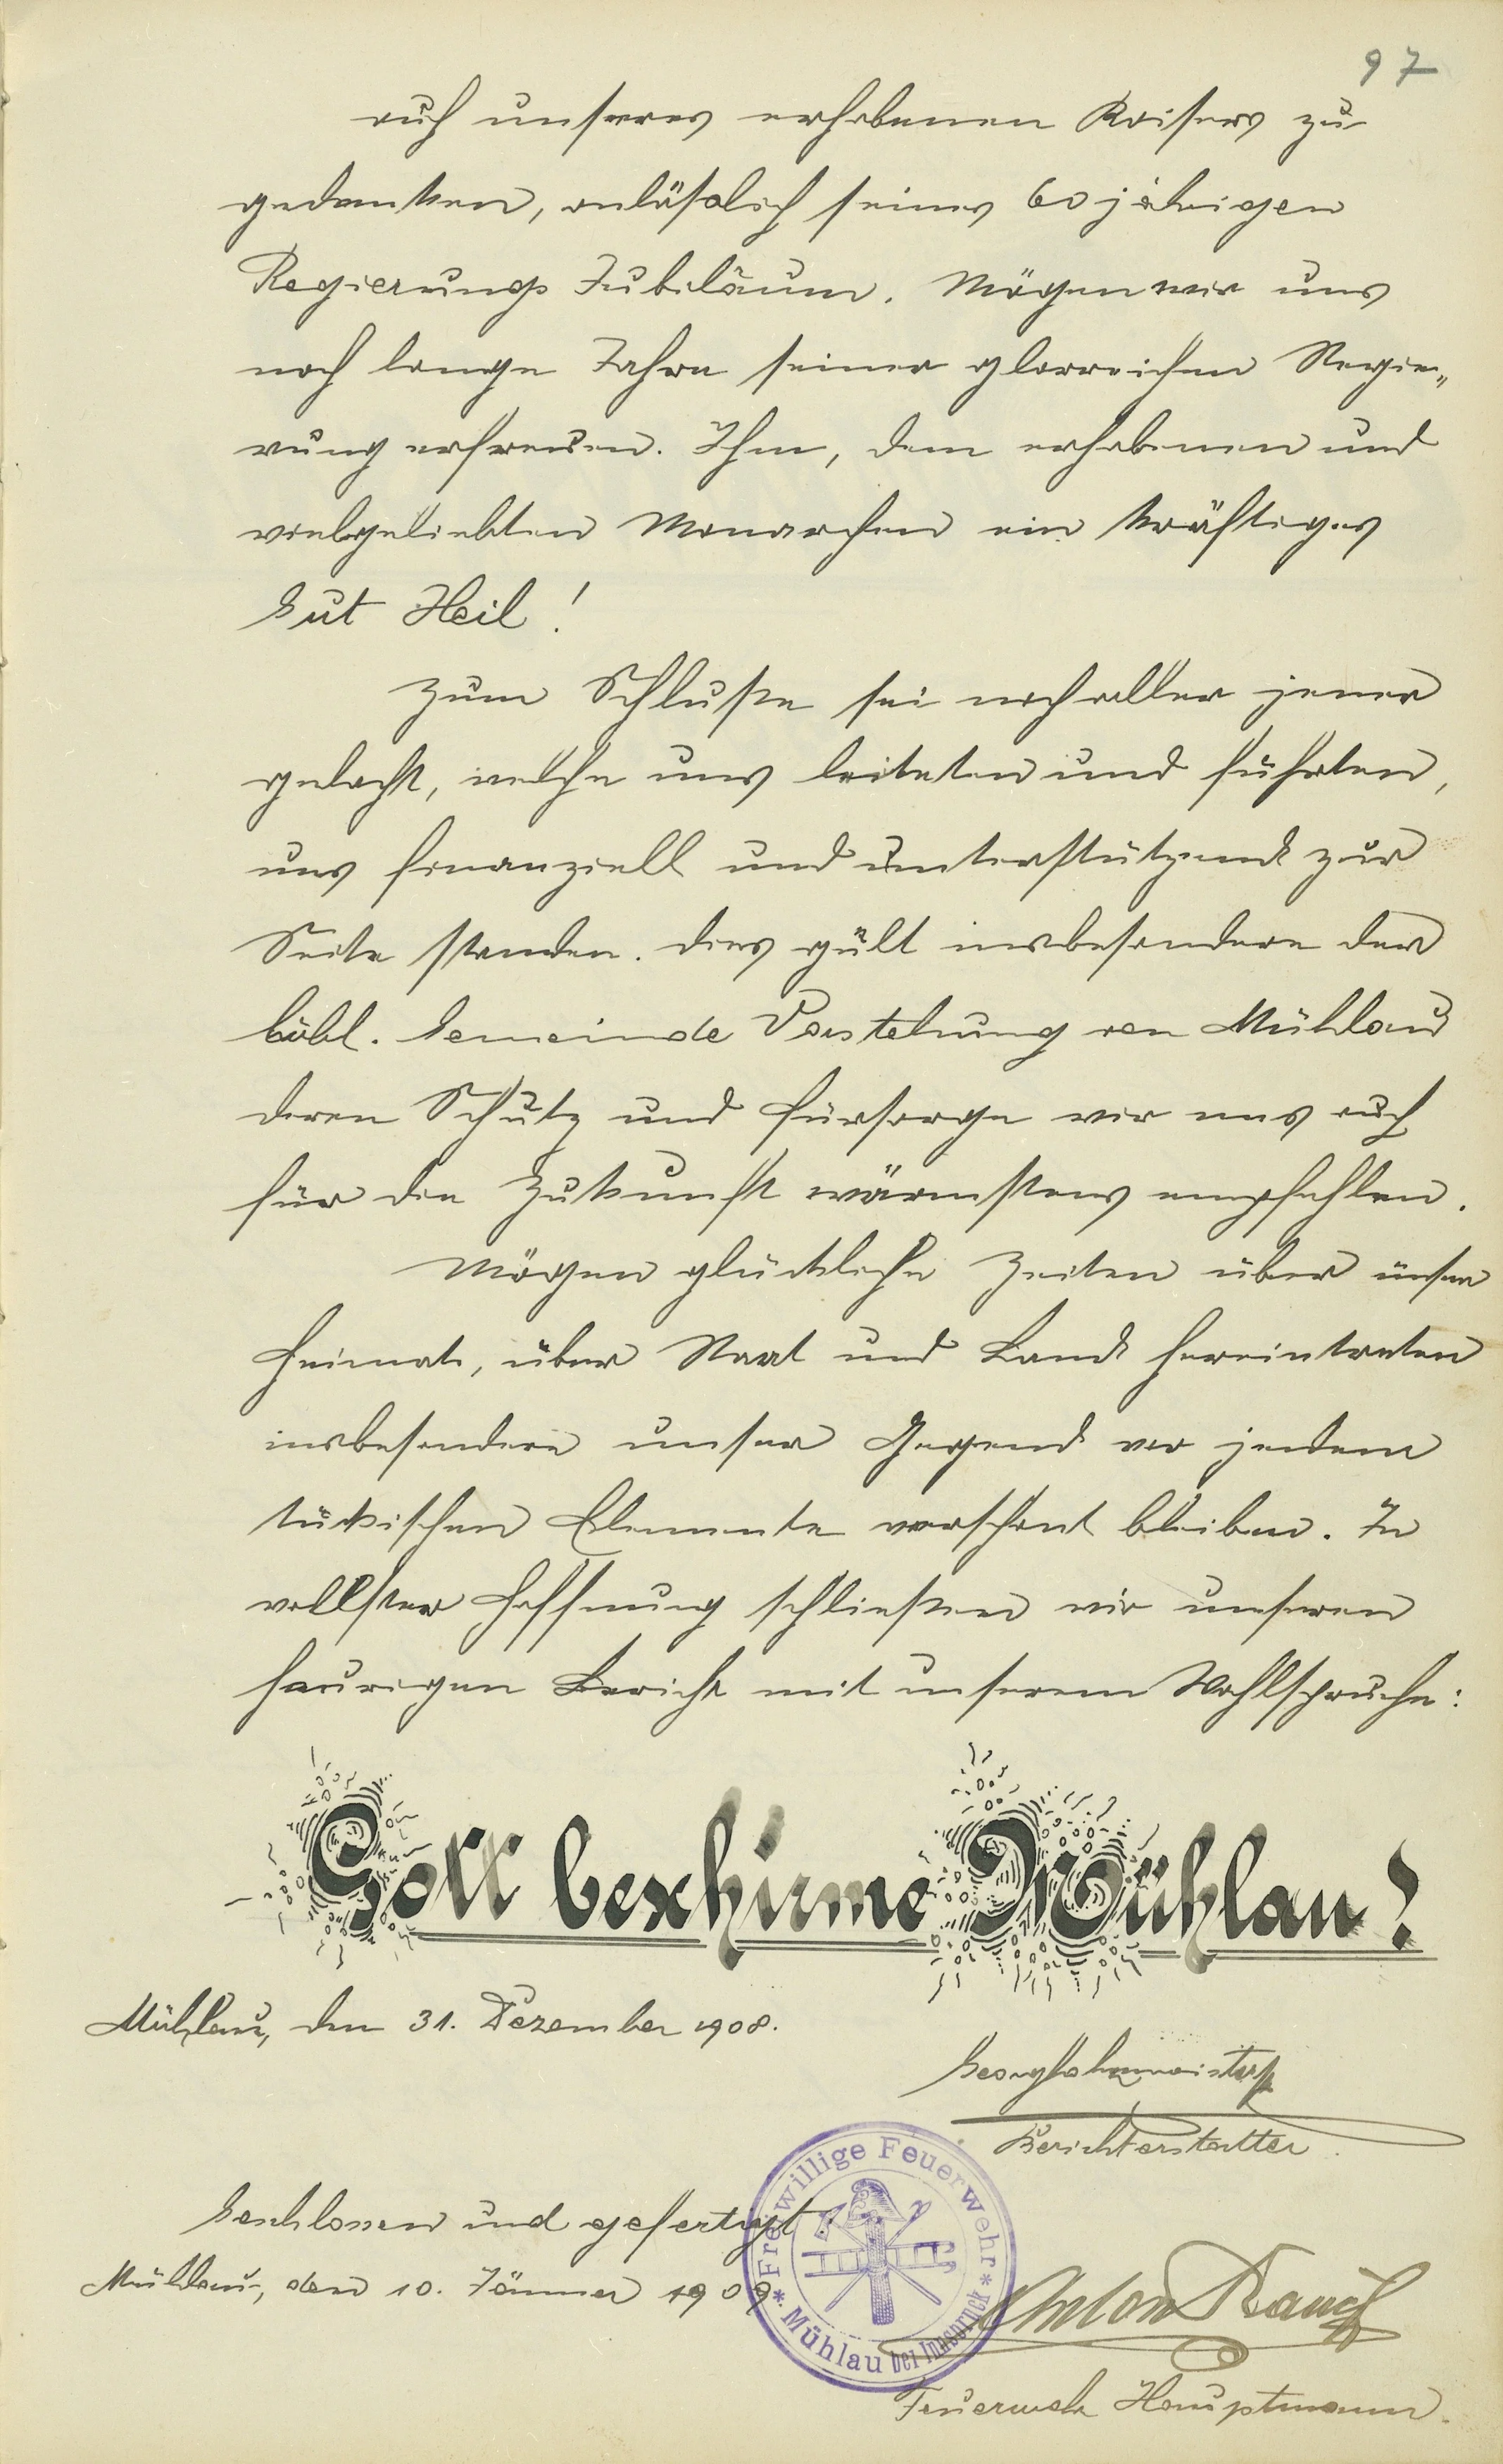 97
auch unseres erhabenen Kaisers zu
gedenken, anläßlich seines 60 jährigen
Regierungs Jubiläum. Mögen wir uns
noch lange Jahre seiner glorreichen Regie„
rung erfreuen. Ihm, dem erhabenen und
vielgeliebten Monarchen ein kräftiges
Gut Heil!
Zum Schluße sei noch aller jener
gedacht, welche uns leiteten und führten,
uns finanziell und unterstützend zur
Seite standen. Dies gült insbesondere der
löbl. Gemeinde Vorstehung von Mühlau
deren Schutz und Fürsorge wir uns auch
für die Zukunft wärmstens empfehlen.
Mögen glückliche Zeiten über unsere
Heimat, über Staat und Land hereintreten
insbesondere unser Gegend vor jedem
tückischen Elemente verschont bleiben. In
vollster Hoffnung schließen wir unseren
heurigen Bericht mit unserem Wahlspruche:
Gott beschirme Mühlau!
Mühlau, den 31. Dezember 1908.
Berichterstatter
Geschlossen und gefertigt
Mühlau, den 10. Jänner 1909
Freiwillige Feuerwehr
* Mühlau bei Innsbruck *
Anton Rauch
Feuerwehr Hauptmann.